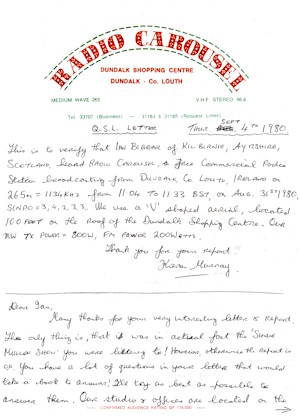 RADIO CAROUSEL
DUNDALK SHOPPING CENTRE
DUNDALK - Co. LOUTH
MEDIUM WAVE 265 V.H.F STEREO 96.6
Tel: 33797 (Business) - 31184 & 31185 (Request Lines)
Q.S.L. LETTER THUR. SEPT 4TH 1980.
This is to verify that IAN BEGGAR of KILBIRNIE, AYRSHIRE,
SCOTLAND, heard RADIO CAROUSEL a free Commercial Radio
Station broadcasting from Dundalk Co Louth, Ireland on
265m = 1134KHz from 11.04 to 11.33 BST, on Aug. 31st 1980,
SINPO = 3, 4, 2, 3, 3. We use a 'V' shaped aerial, located
100 FOOT on the Roof of the Dundalk Shopping Centre. Our
MW TX POWER = 800W, FM POWER 200Watts.
Thank you for your report
Kieran Murray
Dear Ian,
Many thanks for your very interesting letter & Report.
The only thing is, that it was in actual fact the
Show you were listening to! However, otherwise the report is
OK. You have a lot of questions in your letter that would
take a book to answer! I'll try as best as possible to
answer them. Our studio & offices are located on the
CONFIRMED AUDIENCE RATING